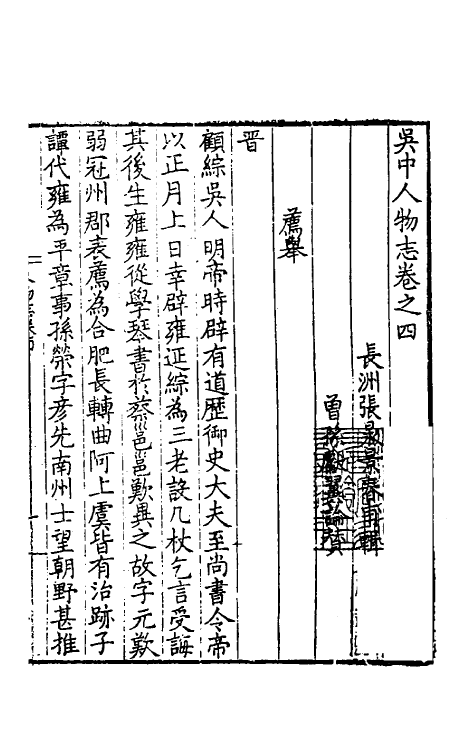 吳中人物志卷之四
長洲張昶景春甫輯
曾孫獻翼論贊
薦舉
晋
顧綜吳人明帝時辟有道歷御史大夫至尚書令帝
以正月上日幸辟雍迎綜為三老設几杖乞言受誨
其後生雍雍從學琴書於蔡邕邕歎異之故字元歎
弱冠州郡表薦為合肥長轉曲阿上虞皆有治跡子
譚代雍為平章事孫榮字彦先南州士望朝野甚推